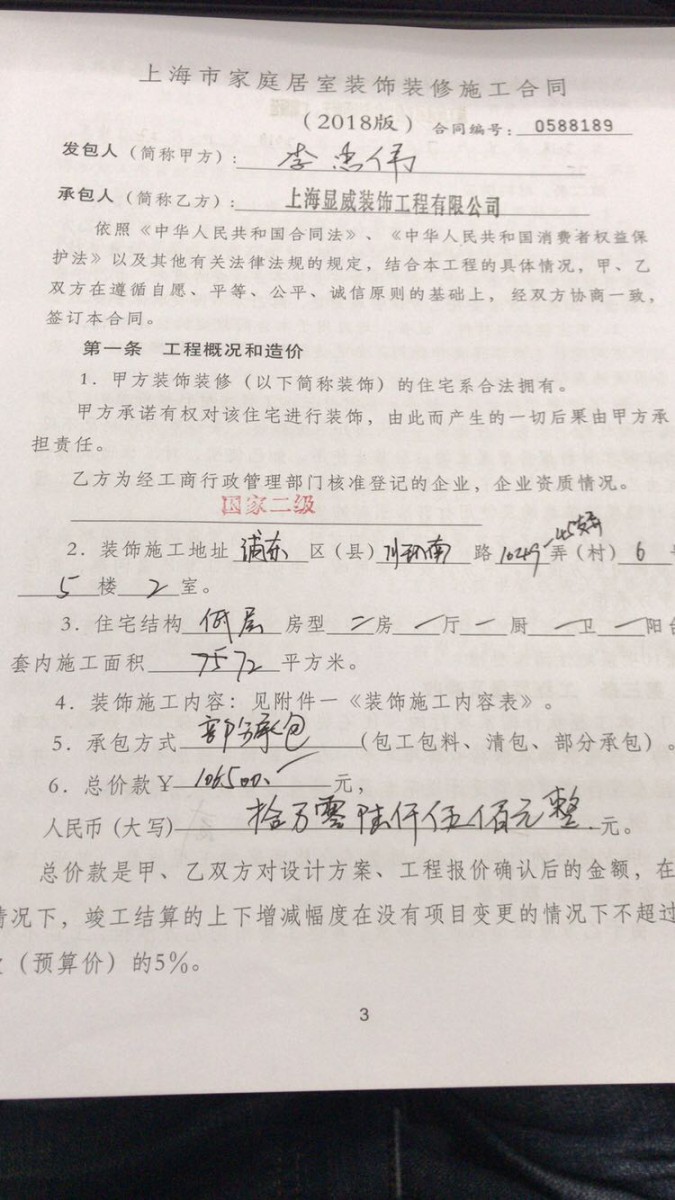 上海市家庭居室装饰装修施工合同
（2018版）合同编号：0588189
发包人（简称甲方）：李忠伟
承包人（简称乙方）：上海显威装饰工程有限公司
依照《中华人民共和国合同法》、《中华人民共和国消费者权益保
护法》以及其他有关法律法规的规定，结合本工程的具体情况，甲、乙
双方在遵循自愿、平等、公平、诚信原则的基础上，经双方协商一致，
签订本合同。
第一条 工程概况和造价
1．甲方装饰装修（以下简称装饰）的住宅系合法拥有。
甲方承诺有权对该住宅进行装饰，由此而产生的一切后果由甲方承
担责任。
乙方为经工商行政管理部门核准登记的企业，企业资质情况。
国家二级
2．装饰施工地址浦东区（县）川环南路1049弄（村）6
5楼2室。
3．住宅结构低层房型二房一厅一厨一卫一阳台
套内施工面积7572平方米。
4．装饰施工内容：见附件一《装饰施工内容表》。
5．承包方式部分承包（包工包料、清包、部分承包）。
6．总价款￥106500.元，
人民币（大写）拾万零陆仟伍佰元整元。
总价款是甲、乙双方对设计方案、工程报价确认后的金额，在
情况下，竣工结算的上下增减幅度在没有项目变更的情况下不超过
（预算价）的5%。
3